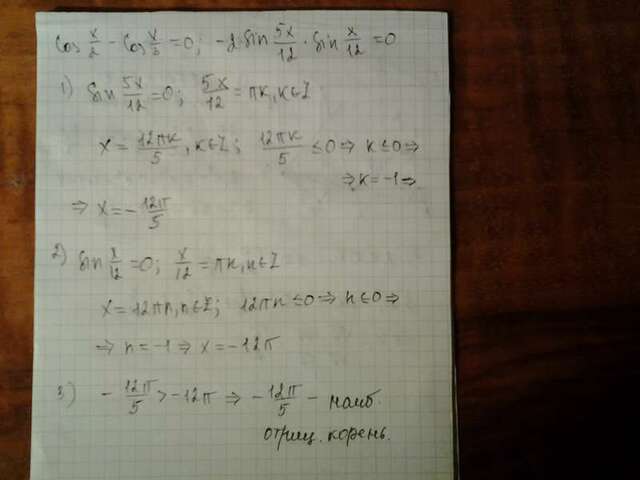 cos x/2 - cos x/3 = 0; -2 sin 5x/12 · sin x/12 = 0
1) sin 5x/12 = 0; 5x/12 = πk, k∈Z
x = 12πk/5, k∈Z; 12πk/5 ≤ 0 ⇒ k ≤ 0 ⇒
⇒ k = -1 ⇒
⇒ x = - 12π/5
2) sin x/12 = 0; x/12 = πn, n∈Z
x = 12πn, n∈Z; 12πn ≤ 0 ⇒ n ≤ 0 ⇒
⇒ n = -1 ⇒ x = -12π
3) - 12π/5 > -12π ⇒ - 12π/5 - наиб.
отриц. корень.